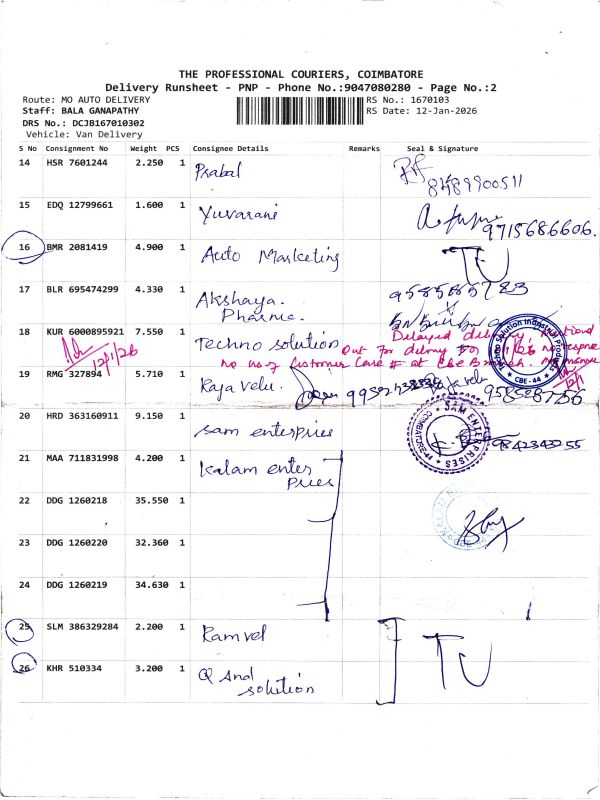 THE PROFESSIONAL COURIERS, COIMBATORE
Delivery Runsheet - PNP - Phone No.:9047080280 - Page No.:2
Route: MO AUTO DELIVERY RS No.: 1670103
Staff: BALA GANAPATHY RS Date: 12-Jan-2026
DRS No.: DCJB167010302
Vehicle: Van Delivery
S No Consignment No Weight PCS Consignee Details Remarks Seal & Signature
14 HSR 7601244 2.250 1 Prabal
8489900511
15 EDQ 12799661 1.600 1 Yuvarani
9715686606.
16 BMR 2081419 4.900 1 Auto Marketing TU
17 BLR 695474299 4.330 1 Akshaya. 9585865783
Pharma.
18 KUR 6000895921 7.550 1 Techno solution Delayed
Out For
no no of Customer Care # at CBE Branch.
12/1/26
Techno Solution Industrial Products
CBE-44
12/1
19 RMG 327894 5.710 1 Raja velu.
20 HRD 363160911 9.150 1 Sam enterpries 9842343255
SAM ENTERPRISES
21 MAA 711831998 4.200 1 Kalam enter
pries
22 DDG 1260218 35.550 1
23 DDG 1260220 32.360 1
24 DDG 1260219 34.630 1
25 SLM 386329284 2.200 1 Ramvel TU
26 KHR 510334 3.200 1 Q And
solution